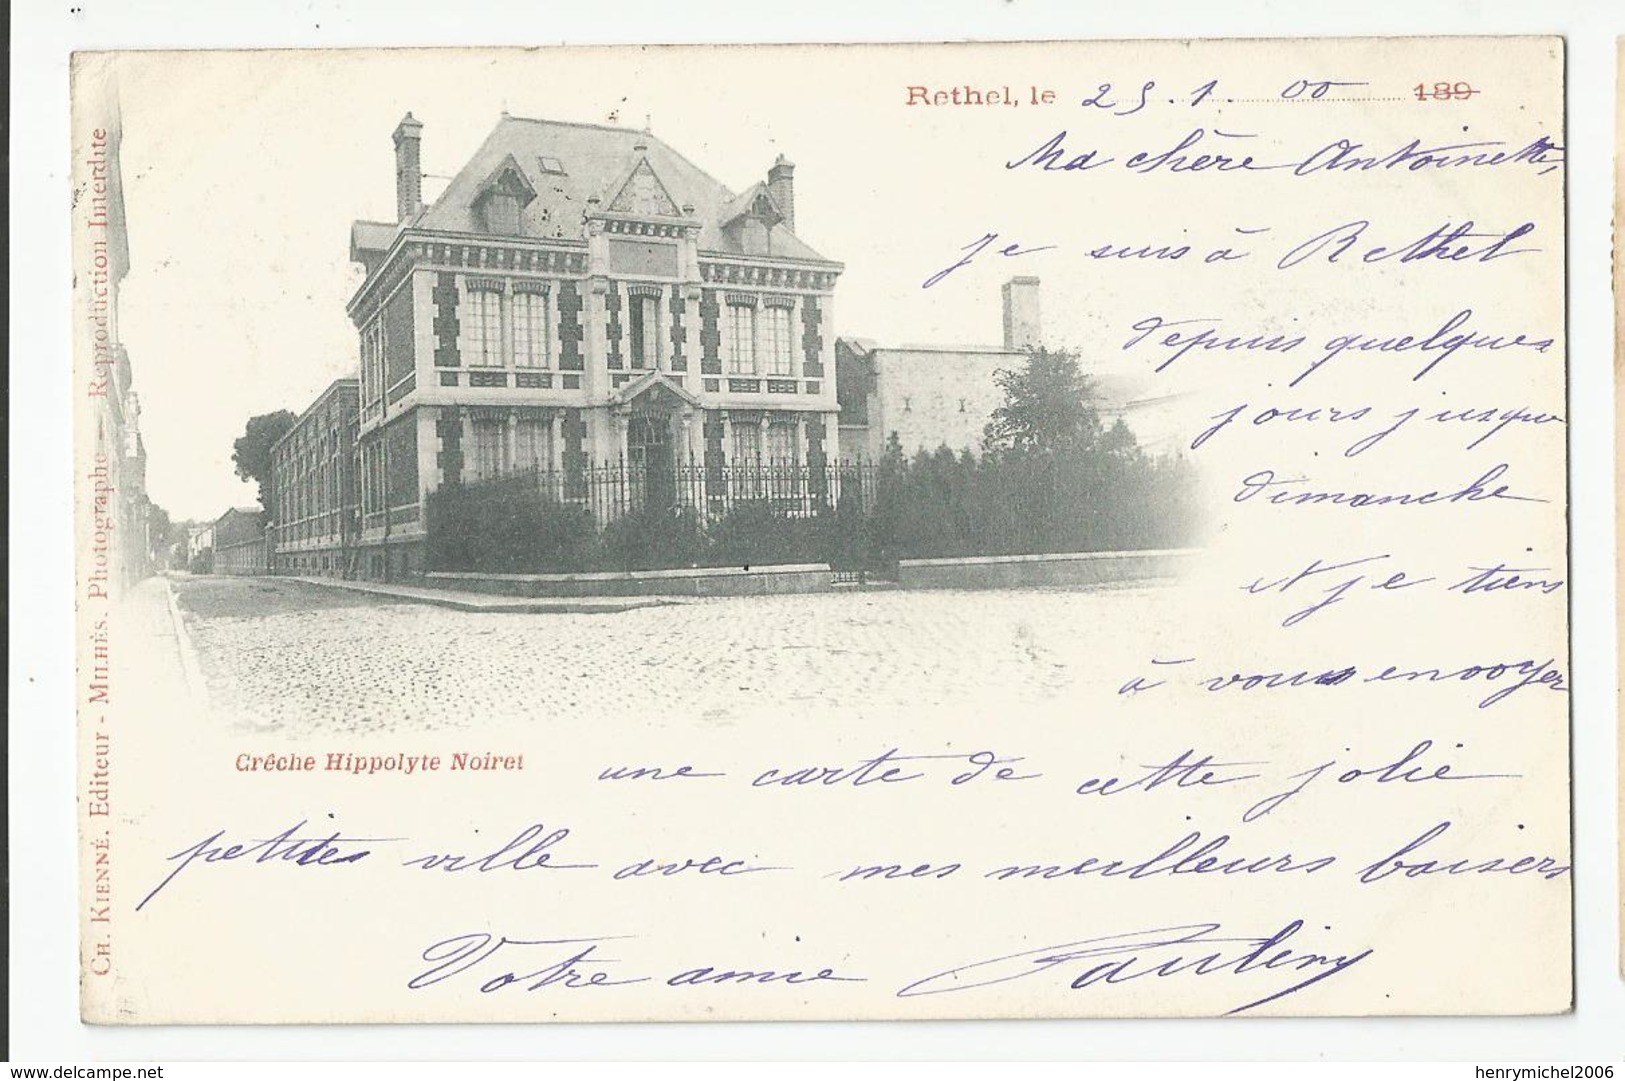 Rethel, le 25 . 1 . 00 189
Ma chère Antoinette,
Je suis à Rethel
depuis quelques
jours jusque
dimanche
et je tiens
à vous envoyer
Crêche Hippolyte Noiret
une carte de cette jolie
petites ville avec mes meilleurs baisers
Votre amie
CH. KIENNÉ. Editeur - MILHÈS. Photographe - Reproduction Interdite
delcampe.net
henrymichel2006